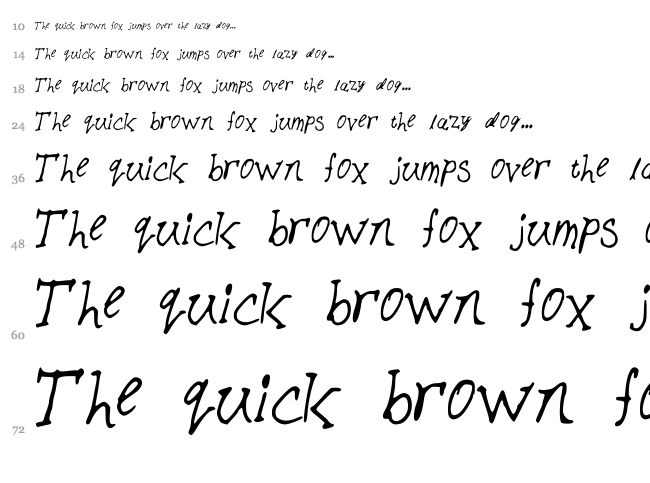 10 The quick brown fox jumps over the lazy dog...
14 The quick brown fox jumps over the lazy dog...
18 The quick brown fox jumps over the lazy dog...
24 The quick brown fox jumps over the lazy dog...
36 The quick brown fox jumps over the la
48 The quick brown fox jumps
60 The quick brown fox j
72 The quick brown fo